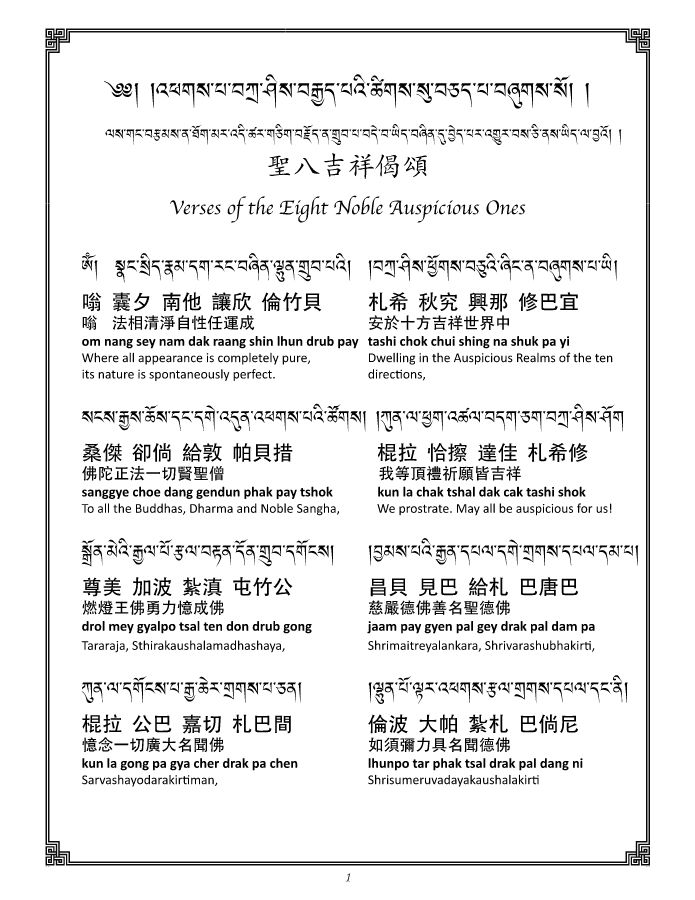 ༄༅། །འཕགས་པ་བཀྲ་ཤིས་བརྒྱད་པའི་ཚིགས་སུ་བཅད་པ་བཞུགས་སོ། །
ལས་གང་བརྩམས་ན་ཐོག་མར་འདི་ཚར་གཅིག་བརྗོད་ན་གྲུབ་པ་བདེ་བ་ཡིད་བཞིན་དུ་བྱེད་པར་འགྱུར་བས་ཅི་ནས་ཡིད་ལ་བྱའོ། །
聖八吉祥偈頌
Verses of the Eight Noble Auspicious Ones
ཨོཾ། སྣང་སྲིད་རྣམ་དག་རང་བཞིན་ལྷུན་གྲུབ་པའི། །བཀྲ་ཤིས་ཕྱོགས་བཅུའི་ཞིང་ན་བཞུགས་པ་ཡི།
嗡 囊夕 南他 讓欣 倫竹貝 札希 秋究 興那 修巴宜
嗡 法相清淨自性任運成 安於十方吉祥世界中
om nang sey nam dak raang shin lhun drub pay tashi chok chui shing na shuk pa yi
Where all appearance is completely pure, Dwelling in the Auspicious Realms of the ten
its nature is spontaneously perfect. directions,
སངས་རྒྱས་ཆོས་དང་དགེ་འདུན་འཕགས་པའི་ཚོགས། །ཀུན་ལ་ཕྱག་འཚལ་བདག་ཅག་བཀྲ་ཤིས་ཤོག
桑傑 卻倘 給敦 帕貝措 棍拉 恰擦 達佳 札希修
佛陀正法一切賢聖僧 我等頂禮祈願皆吉祥
sanggye choe dang gendun phak pay tshok kun la chak tshal dak cak tashi shok
To all the Buddhas, Dharma and Noble Sangha, We prostrate. May all be auspicious for us!
སྒྲོན་མེའི་རྒྱལ་པོ་རྩལ་བརྟན་དོན་གྲུབ་དགོངས། །བྱམས་པའི་རྒྱན་དཔལ་དགེ་གྲགས་དཔལ་དམ་པ།
尊美 加波 紮滇 屯竹公 昌貝 見巴 給札 巴唐巴
燃燈王佛勇力憶成佛 慈嚴德佛善名聖德佛
drol mey gyalpo tsal ten don drub gong jaam pay gyen pal gey drak pal dam pa
Tararaja, Sthirakaushalamadhashaya, Shrimaitreyalankara, Shrivarashubhakirti,
ཀུན་ལ་དགོངས་པ་རྒྱ་ཆེར་གྲགས་པ་ཅན། །ལྷུན་པོ་ལྟར་འཕགས་རྩལ་གྲགས་དཔལ་དང་ནི།
棍拉 公巴 嘉切 札巴間 倫波 大帕 紮札 巴倘尼
憶念一切廣大名聞佛 如須彌力具名聞德佛
kun la gong pa gya cher drak pa chen lhunpo tar phak tsal drak pal dang ni
Sarvashayodarakirtiman, Shrisumeruvadayakaushalakirti
1